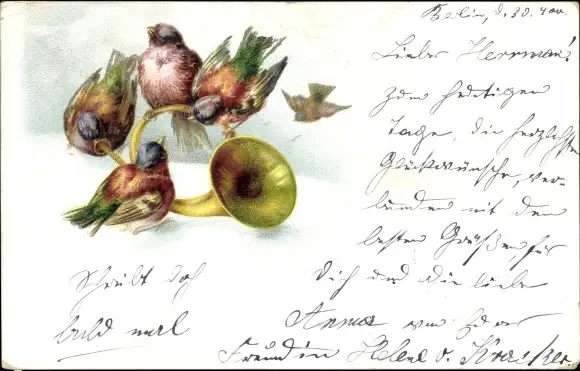 Berlin, d. 30. 4 00.
Lieber Herrman!
zum heutigen
Tage, die herzlichsten
Glückwünsche, ver-
bunden mit den
besten Grüßen, für
Dich und die liebe
Anna von Eurer
Freundin Helene v.
Schreibt doch
bald mal